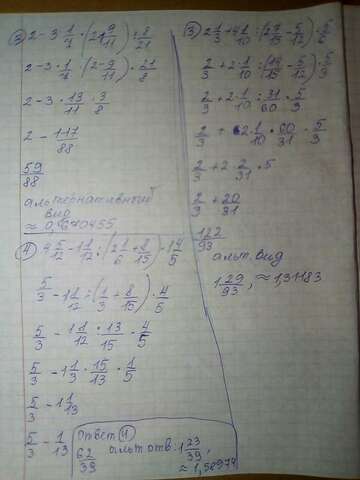 ③ 2 - 3·1/7 · (2 1 9/11) : 8/21
2 - 3 · 1/7 · (2 - 9/11) · 21/8
2 - 3 · 13/11 · 3/8
2 - 117/88
59/88
альтернативный
вид
≈ 0,670455
④ 4 5/12 - 1 1/12 : (2 1/6 + 8/15) · 1 4/5
5/3 - 1 1/12 : (1/3 + 8/15) · 4/5
5/3 - 1 1/12 · 13/15 · 4/5
5/3 - 1 1/3 · 15/13 · 1/5
5/3 - 1 1/13
5/3 - 1/13
Ответ ④
62/39 альт отв. 1 23/39,
≈ 1,58974
③ 2 1/3 + 4 1/10 : (2 14/15 - 5/12) · 5/3
2/3 + 2 · 1/10 : (14/15 - 5/12) · 5/3
2/3 + 2 · 1/10 : 31/60 · 5/3
2/3 + 2 · 1/10 · 60/31 · 5/3
2/3 + 2 · 2/31 · 5
2/3 + 20/31
122/93
альт. вид
1 29/93, ≈ 1,31183